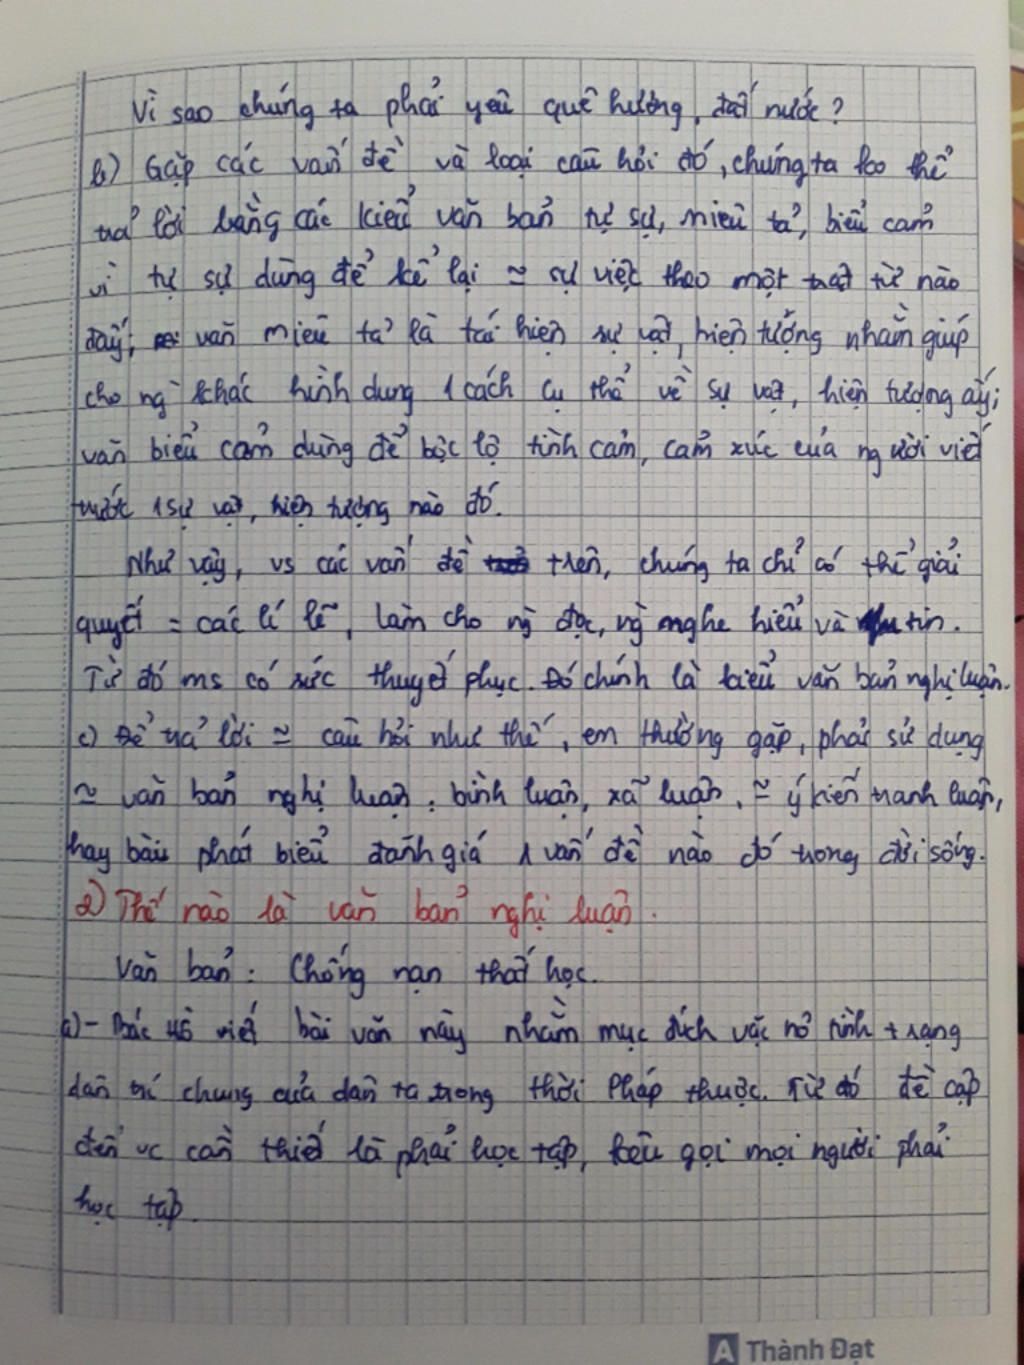 Vì sao chúng ta phải yêu quê hương, đất nước?
b) Gặp các vấn đề và loại câu hỏi đó, chúng ta ko thể
trả lời bằng các kiểu văn bản tự sự, miêu tả, biểu cảm
vì tự sự dùng để kể lại ~ sự việc theo một trật tự nào
đấy; văn miêu tả là tái hiện sự vật, hiện tượng nhằm giúp
cho ng` khác hình dung 1 cách cụ thể về sự vật, hiện tượng ấy;
văn biểu cảm dùng để bộc lộ tình cảm, cảm xúc của người viết
trước 1 sự vật, hiện tượng nào đó.
Như vậy, vs các vấn đề trên, chúng ta chỉ có thể giải
quyết = các lí lẽ, làm cho ng` đọc, ng` nghe hiểu và tin.
Từ đó ms có sức thuyết phục. Đó chính là kiểu văn bản nghị luận.
c) Để trả lời ~ câu hỏi như thế, em thường gặp, phải sử dụng
~ văn bản nghị luận: bình luận, xã luận, ~ ý kiến tranh luận,
hay bài phát biểu đánh giá 1 vấn đề nào đó trong đời sống.
2) Thế nào là văn bản nghị luận.
Văn bản: Chống nạn thất học.
a) - Bác Hồ viết bài văn này nhằm mục đích vạc rõ tình trạng
dân trí chung của dân ta trong thời Pháp thuộc. Từ đó đề cập
đến vc cần thiết là phải học tập, kêu gọi mọi người phải
học tập.
A Thành Đạt